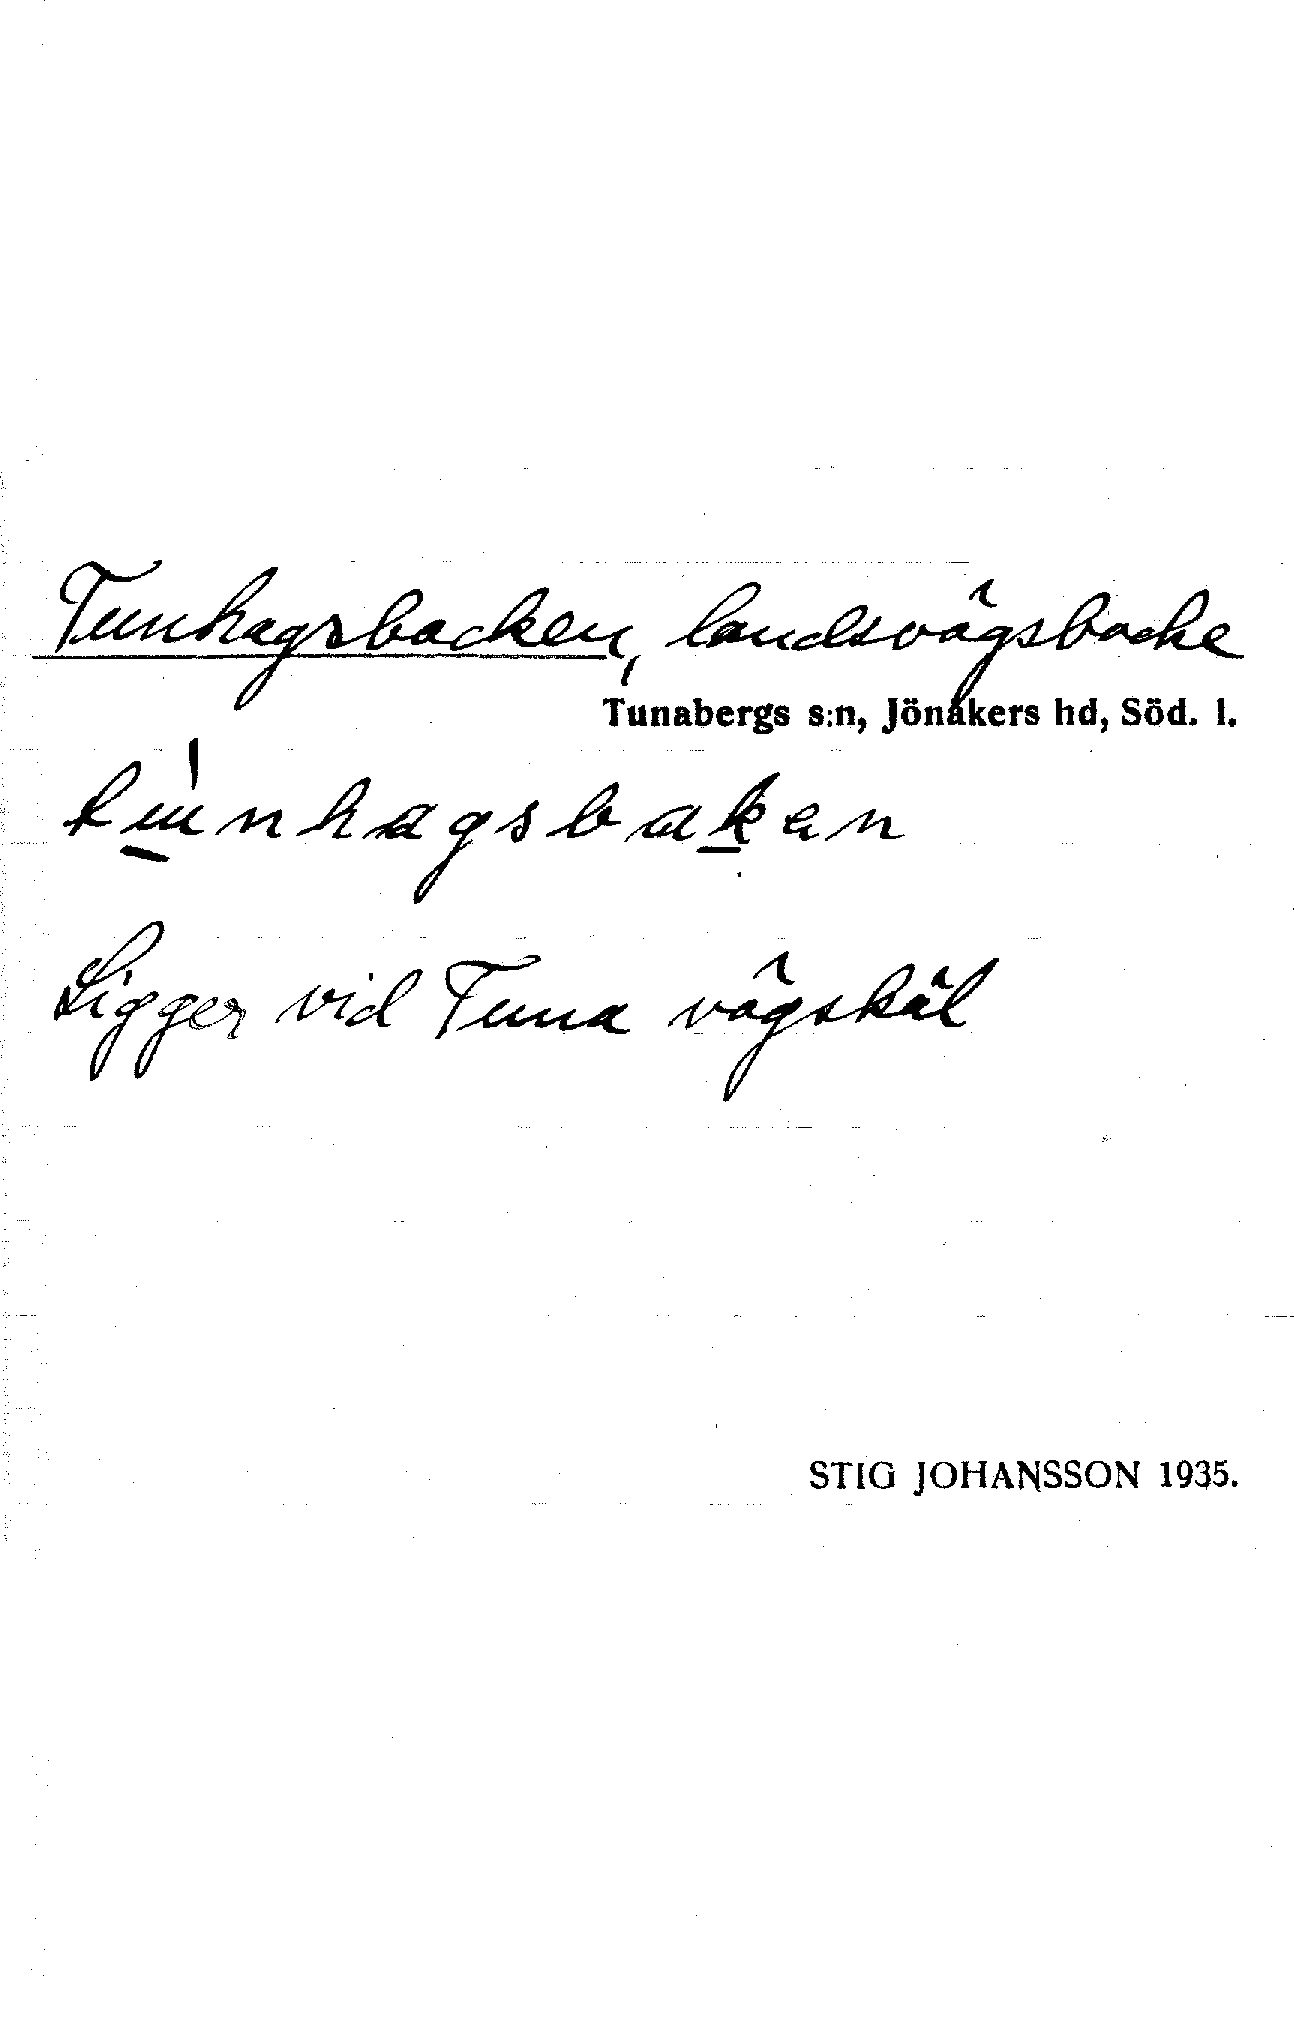 Tunhagsbacken, landsvägsbacke
Tunabergs s:n, Jönåkers hd, Söd. l.
tu̠̍nhagsbak̠en
Ligger vid Tuna vägskäl
STIG JOHANSSON 1935.